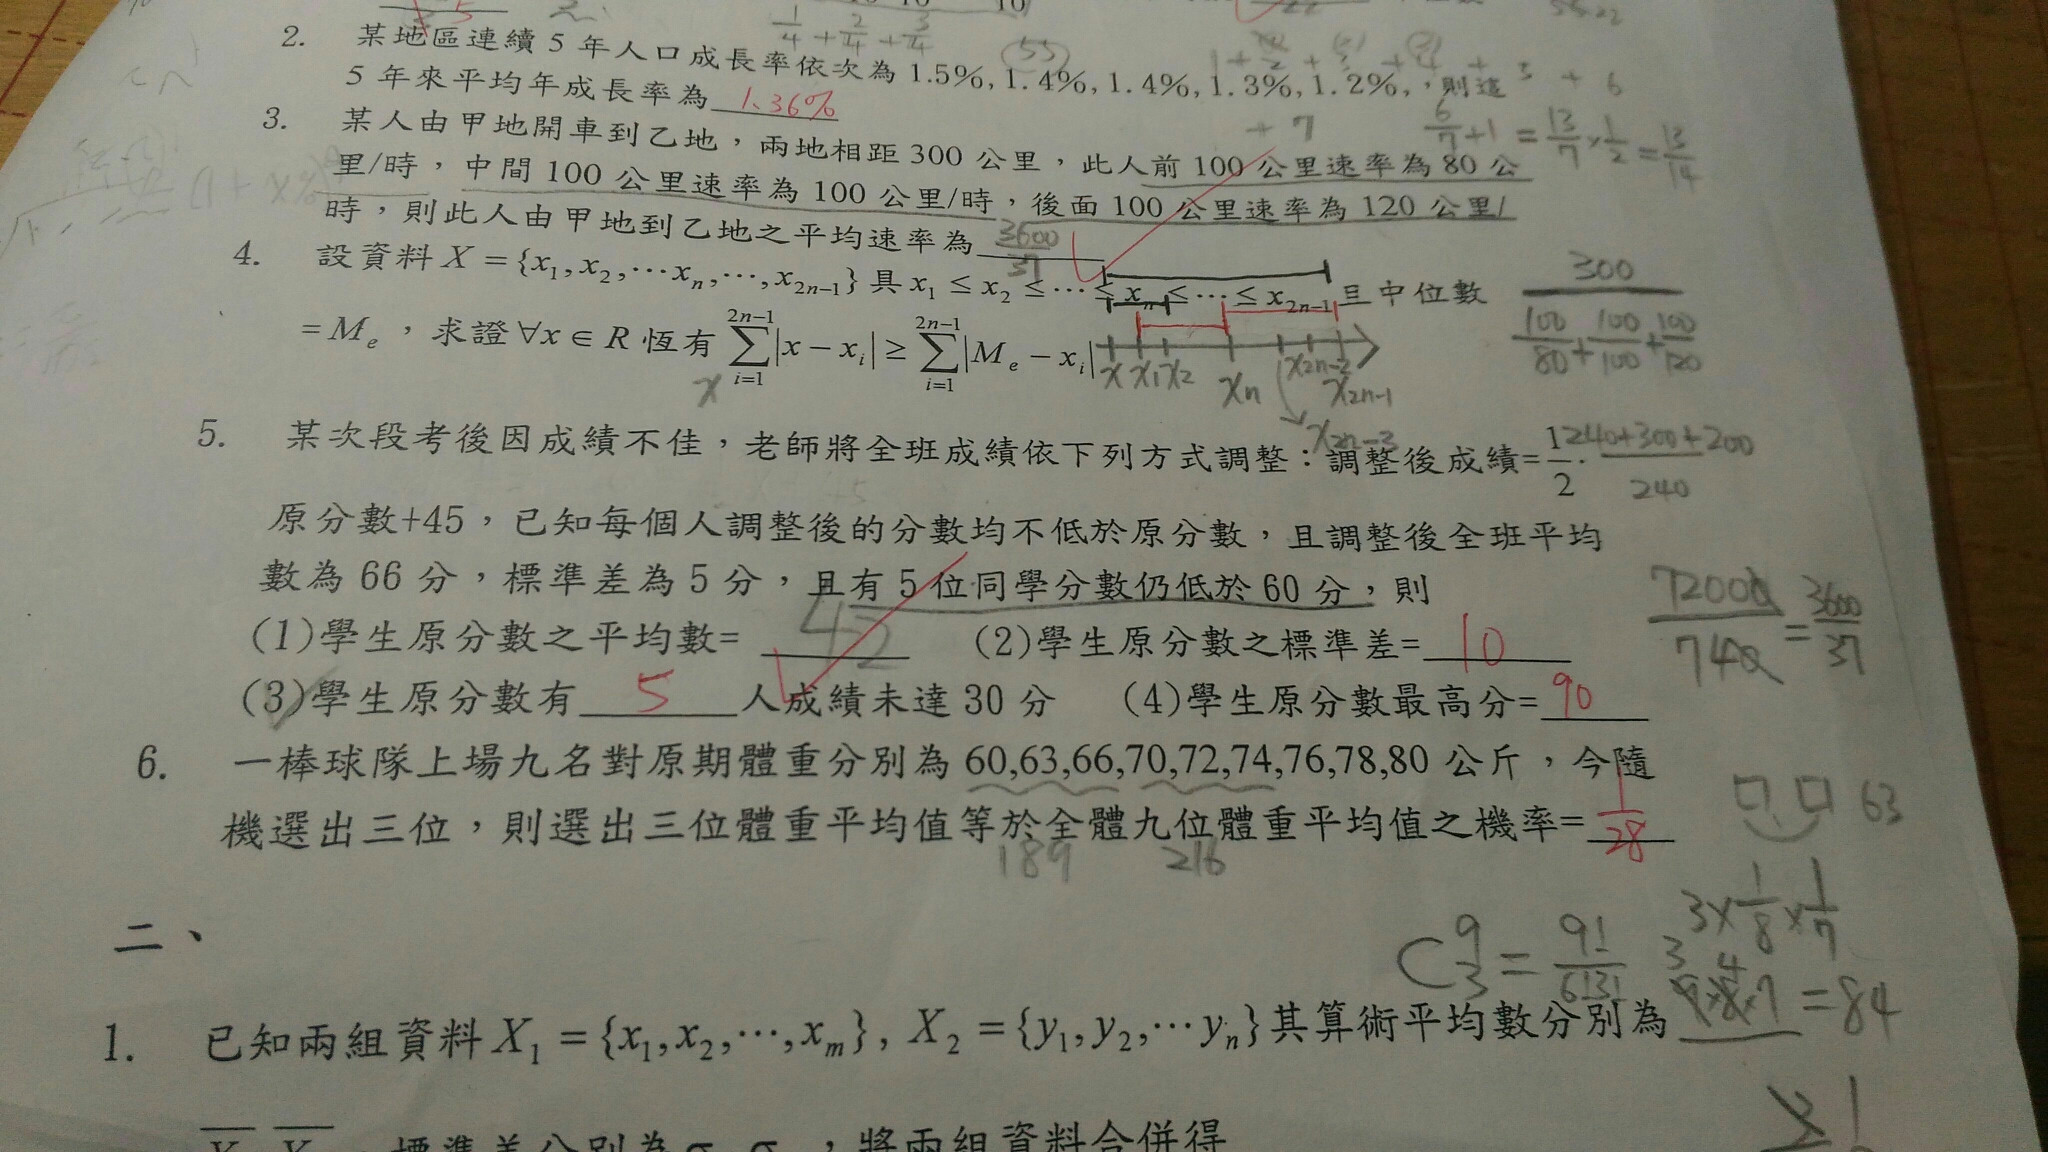 1/4 + 2/4 + 3/4
(55)
2. 某地區連續 5 年人口成長率依次為 1.5%, 1.4%, 1.4%, 1.3%, 1.2%,,則這
5 年來平均年成長率為 1.36%
+ 7
6/7 + 1 = 13/7 × 1/2 = 13/14
3. 某人由甲地開車到乙地,兩地相距 300 公里,此人前 100 公里速率為 80 公
里/時,中間 100 公里速率為 100 公里/時,後面 100 公里速率為 120 公里/
時,則此人由甲地到乙地之平均速率為 3600/37
4. 設資料 X = {x₁, x₂, ⋯xₙ, ⋯, x₂ₙ₋₁} 具 x₁ ≤ x₂ ≤ ⋯ ≤ xₙ ≤ ⋯ ≤ x₂ₙ₋₁ 且中位數
300
100/80 + 100/100 + 100/120
= Mₑ,求證 ∀x ∈ R 恆有 ∑_{i=1}^{2n−1} |x − xᵢ| ≥ ∑_{i=1}^{2n−1} |Mₑ − xᵢ|
x x₁ x₂ xₙ x₂ₙ₋₂ x₂ₙ₋₁
x
x₂ₙ₋₃
5. 某次段考後因成績不佳,老師將全班成績依下列方式調整:調整後成績= 1/2 ·
240+300+200
240
原分數+45,已知每個人調整後的分數均不低於原分數,且調整後全班平均
數為 66 分,標準差為 5 分,且有 5 位同學分數仍低於 60 分,則
72000/740 = 3600/37
(1)學生原分數之平均數= 42 (2)學生原分數之標準差= 10
(3)學生原分數有 5 人成績未達 30 分 (4)學生原分數最高分= 90
6. 一棒球隊上場九名對原期體重分別為 60,63,66,70,72,74,76,78,80 公斤,今隨
機選出三位,則選出三位體重平均值等於全體九位體重平均值之機率= 1/28
63
189 216
3 × 1/8 × 1/7
C⁹₃ = 9!/6!3! 9×8×7 = 84
3 4
二、
1. 已知兩組資料 X₁ = {x₁, x₂, ⋯, xₘ}, X₂ = {y₁, y₂, ⋯yₙ} 其算術平均數分別為
標準差分別為 σ σ ,將兩組資料合併得